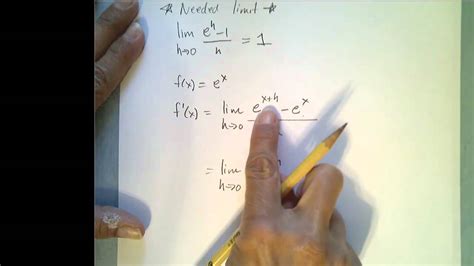 * Needed limit *
lim h→0 (e^h - 1)/h = 1
f(x) = e^x
f'(x) = lim h→0 e^{x+h} - e^x
= lim h→0